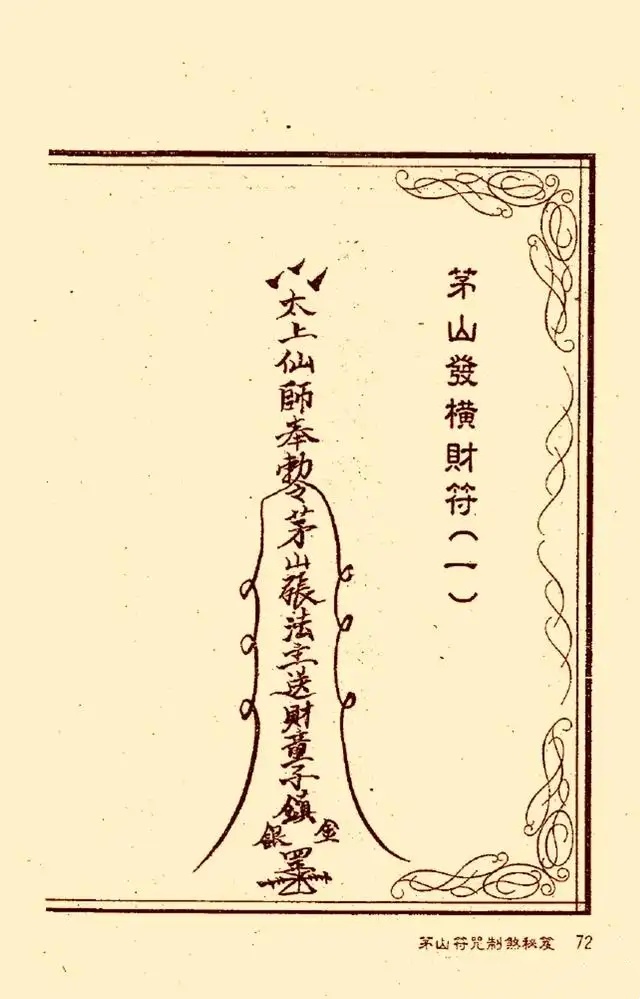 茅山發橫財符(一)
太上仙師奉勅令茅山張法主送財童子鎮
金銀
罡
茅山符咒制煞秘笈 72